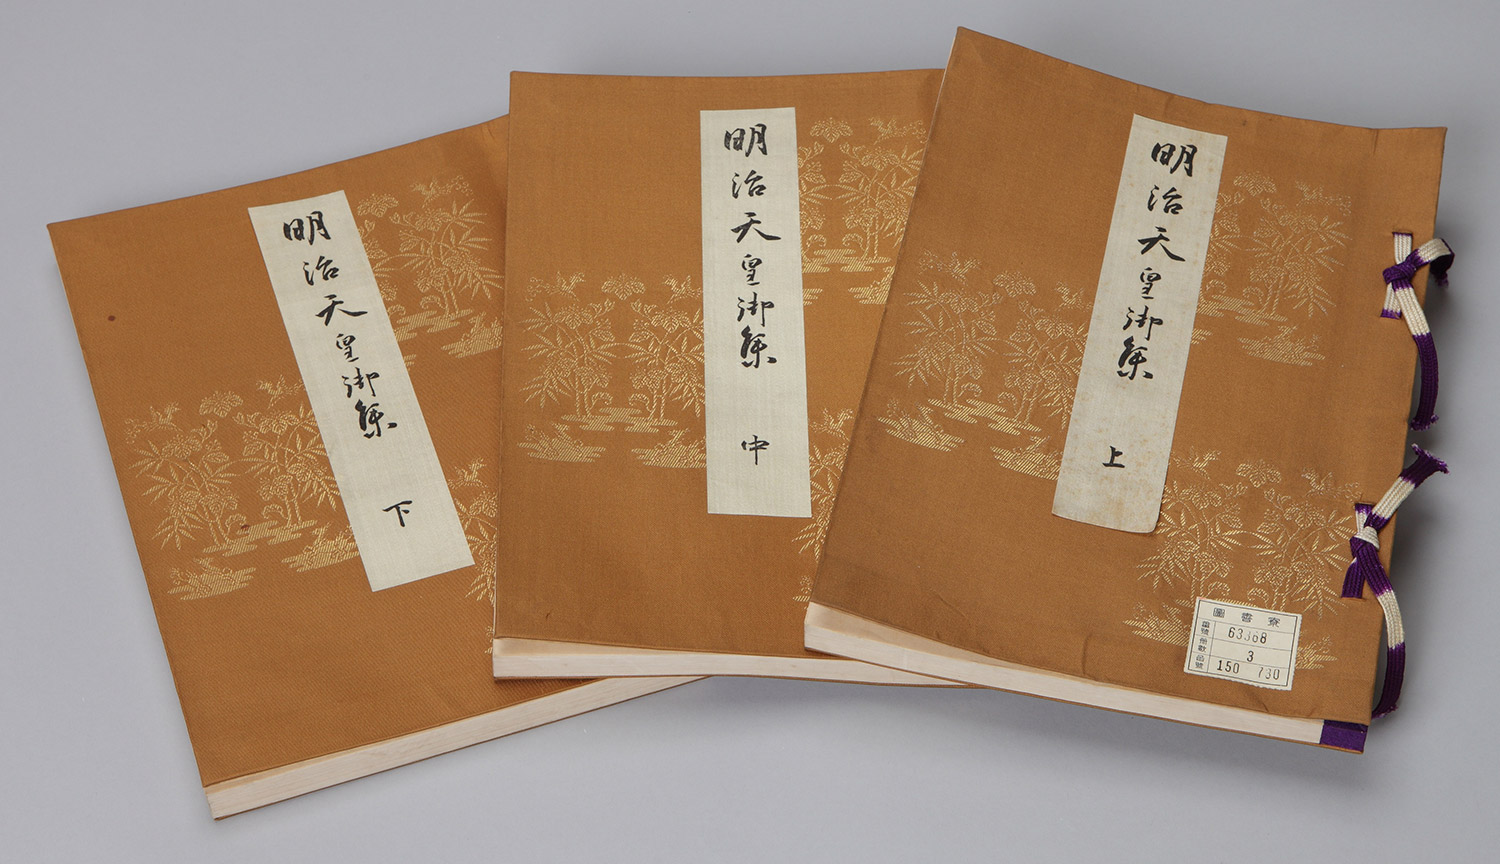 明治天皇御集 上
圖書寮
番號 63368
冊數 3
函號 150 730
明治天皇御集 中
明治天皇御集 下